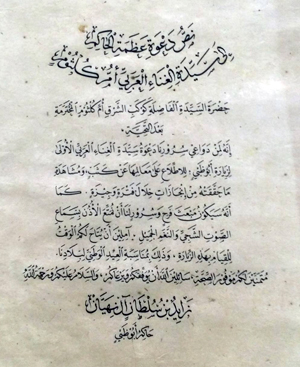 نص دعوة عظمة الحاكم
الى سيدة الغناء العربي أم كلثوم
حضرة السيدة الفاضلة كوكب الشرق أم كلثوم المحترمة
بعد التحية .
إنه لمن دواعي سرورنا دعوة سيدة الغناء العربي الأولى
لزيارة أبوظبي، للإطلاع على معالمها عن كثب، ومشاهدة
ما حققته من إنجازات خلال فترة وجيزة. كما
أنه سيكون مبعث فرح وسرور لنا أن نمتع الأذن بسماع
الصوت الشجي والنغم الجميل. آملين أن يتاح لكم الوقت
للقيام بهذه الزيارة. وذلك بمناسبة العيد الوطني لبلادنا.
متمنين لكم موفور الصحة، سائلين الله أن يوفقكم ويرعاكم، والسلام عليكم ورحمة الله
زايد بن سلطان آل نهيان
حاكم أبوظبي